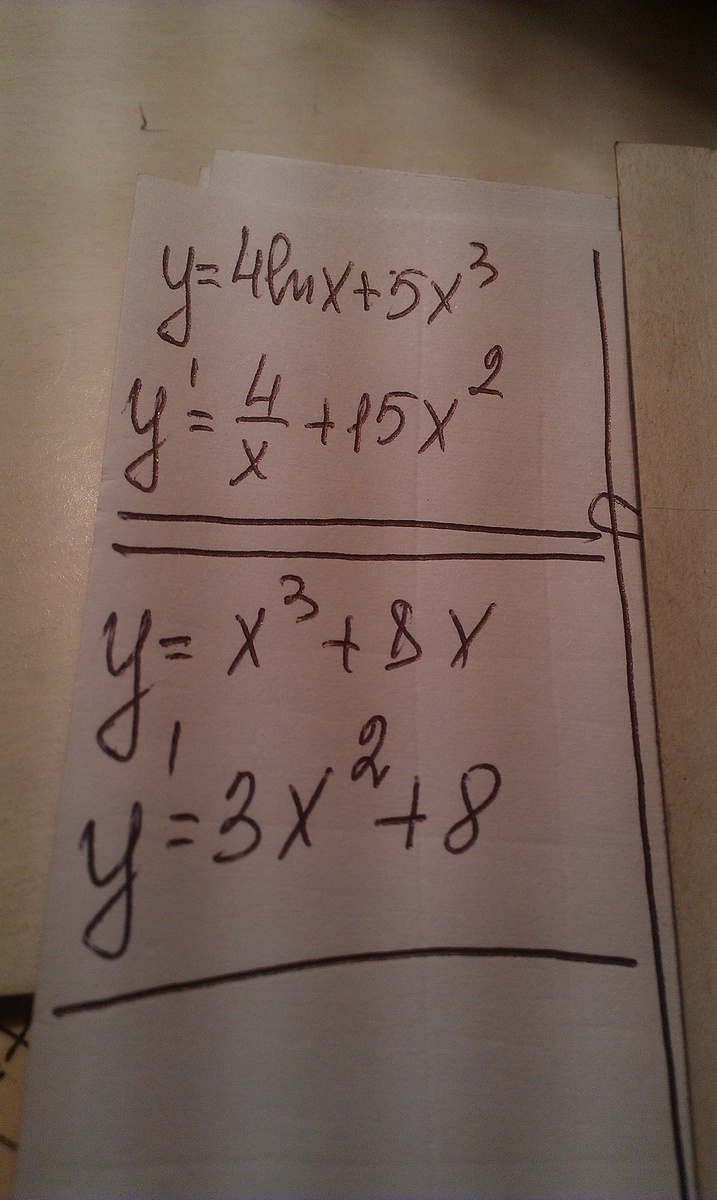 y=4lnx+5x³
y'=4/x+15x²
y=x³+8x
y'=3x²+8